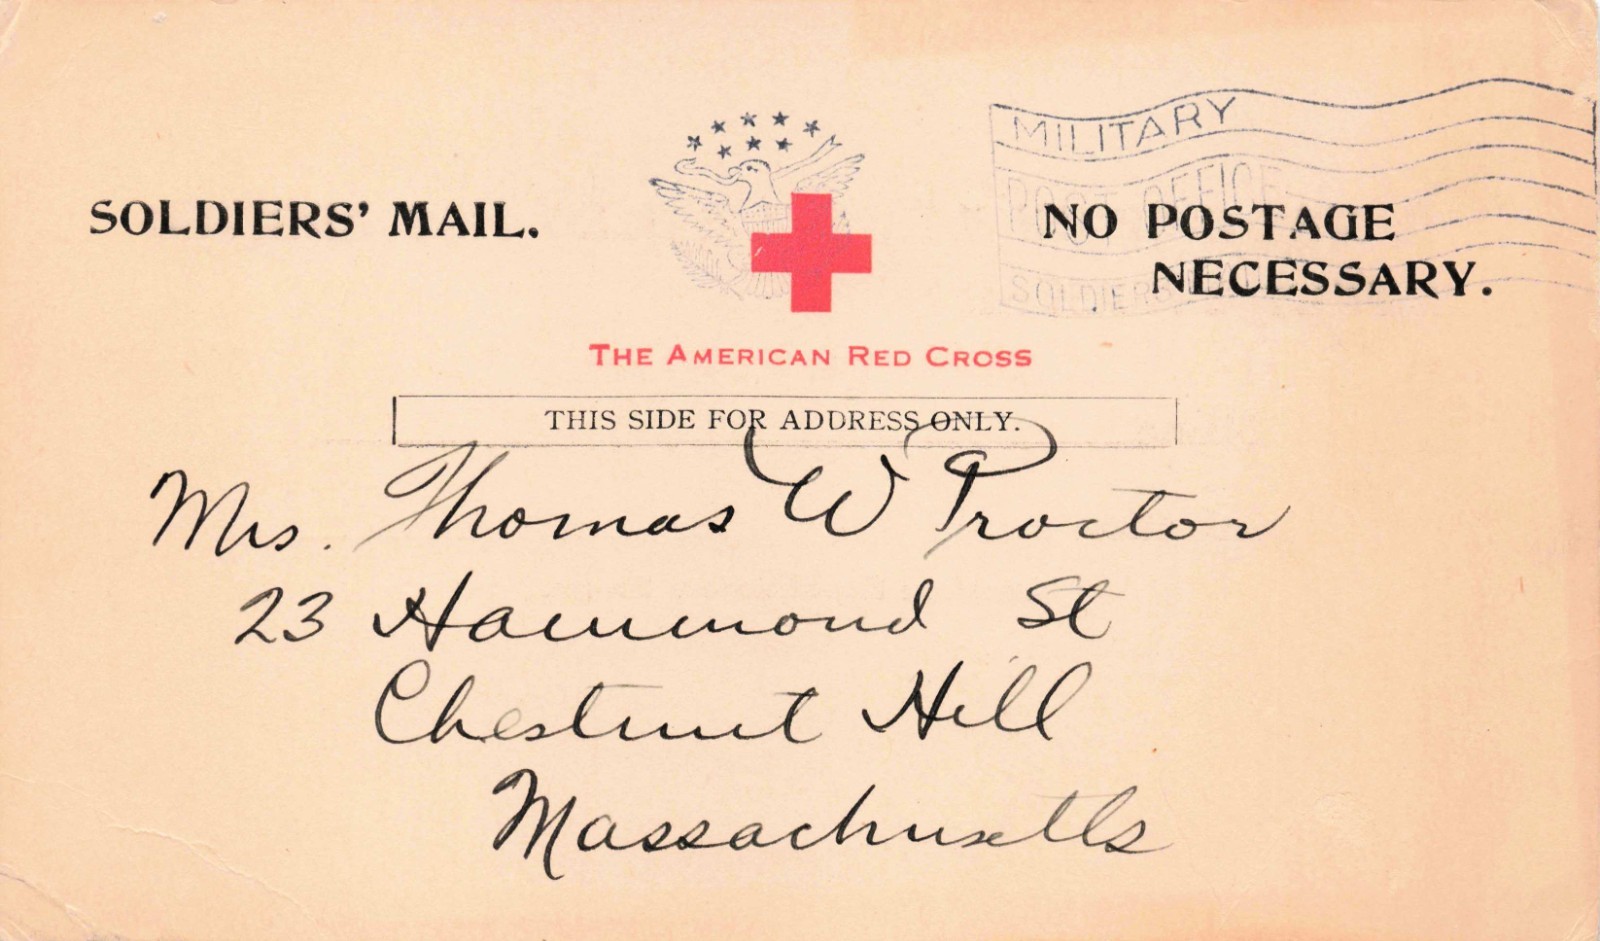 MILITARY
POST OFFICE
SOLDIERS
SOLDIERS' MAIL.
NO POSTAGE
NECESSARY.
THE AMERICAN RED CROSS
THIS SIDE FOR ADDRESS ONLY.
Mrs. Thomas W Proctor
23 Hammond St
Chestnut Hill
Massachusetts